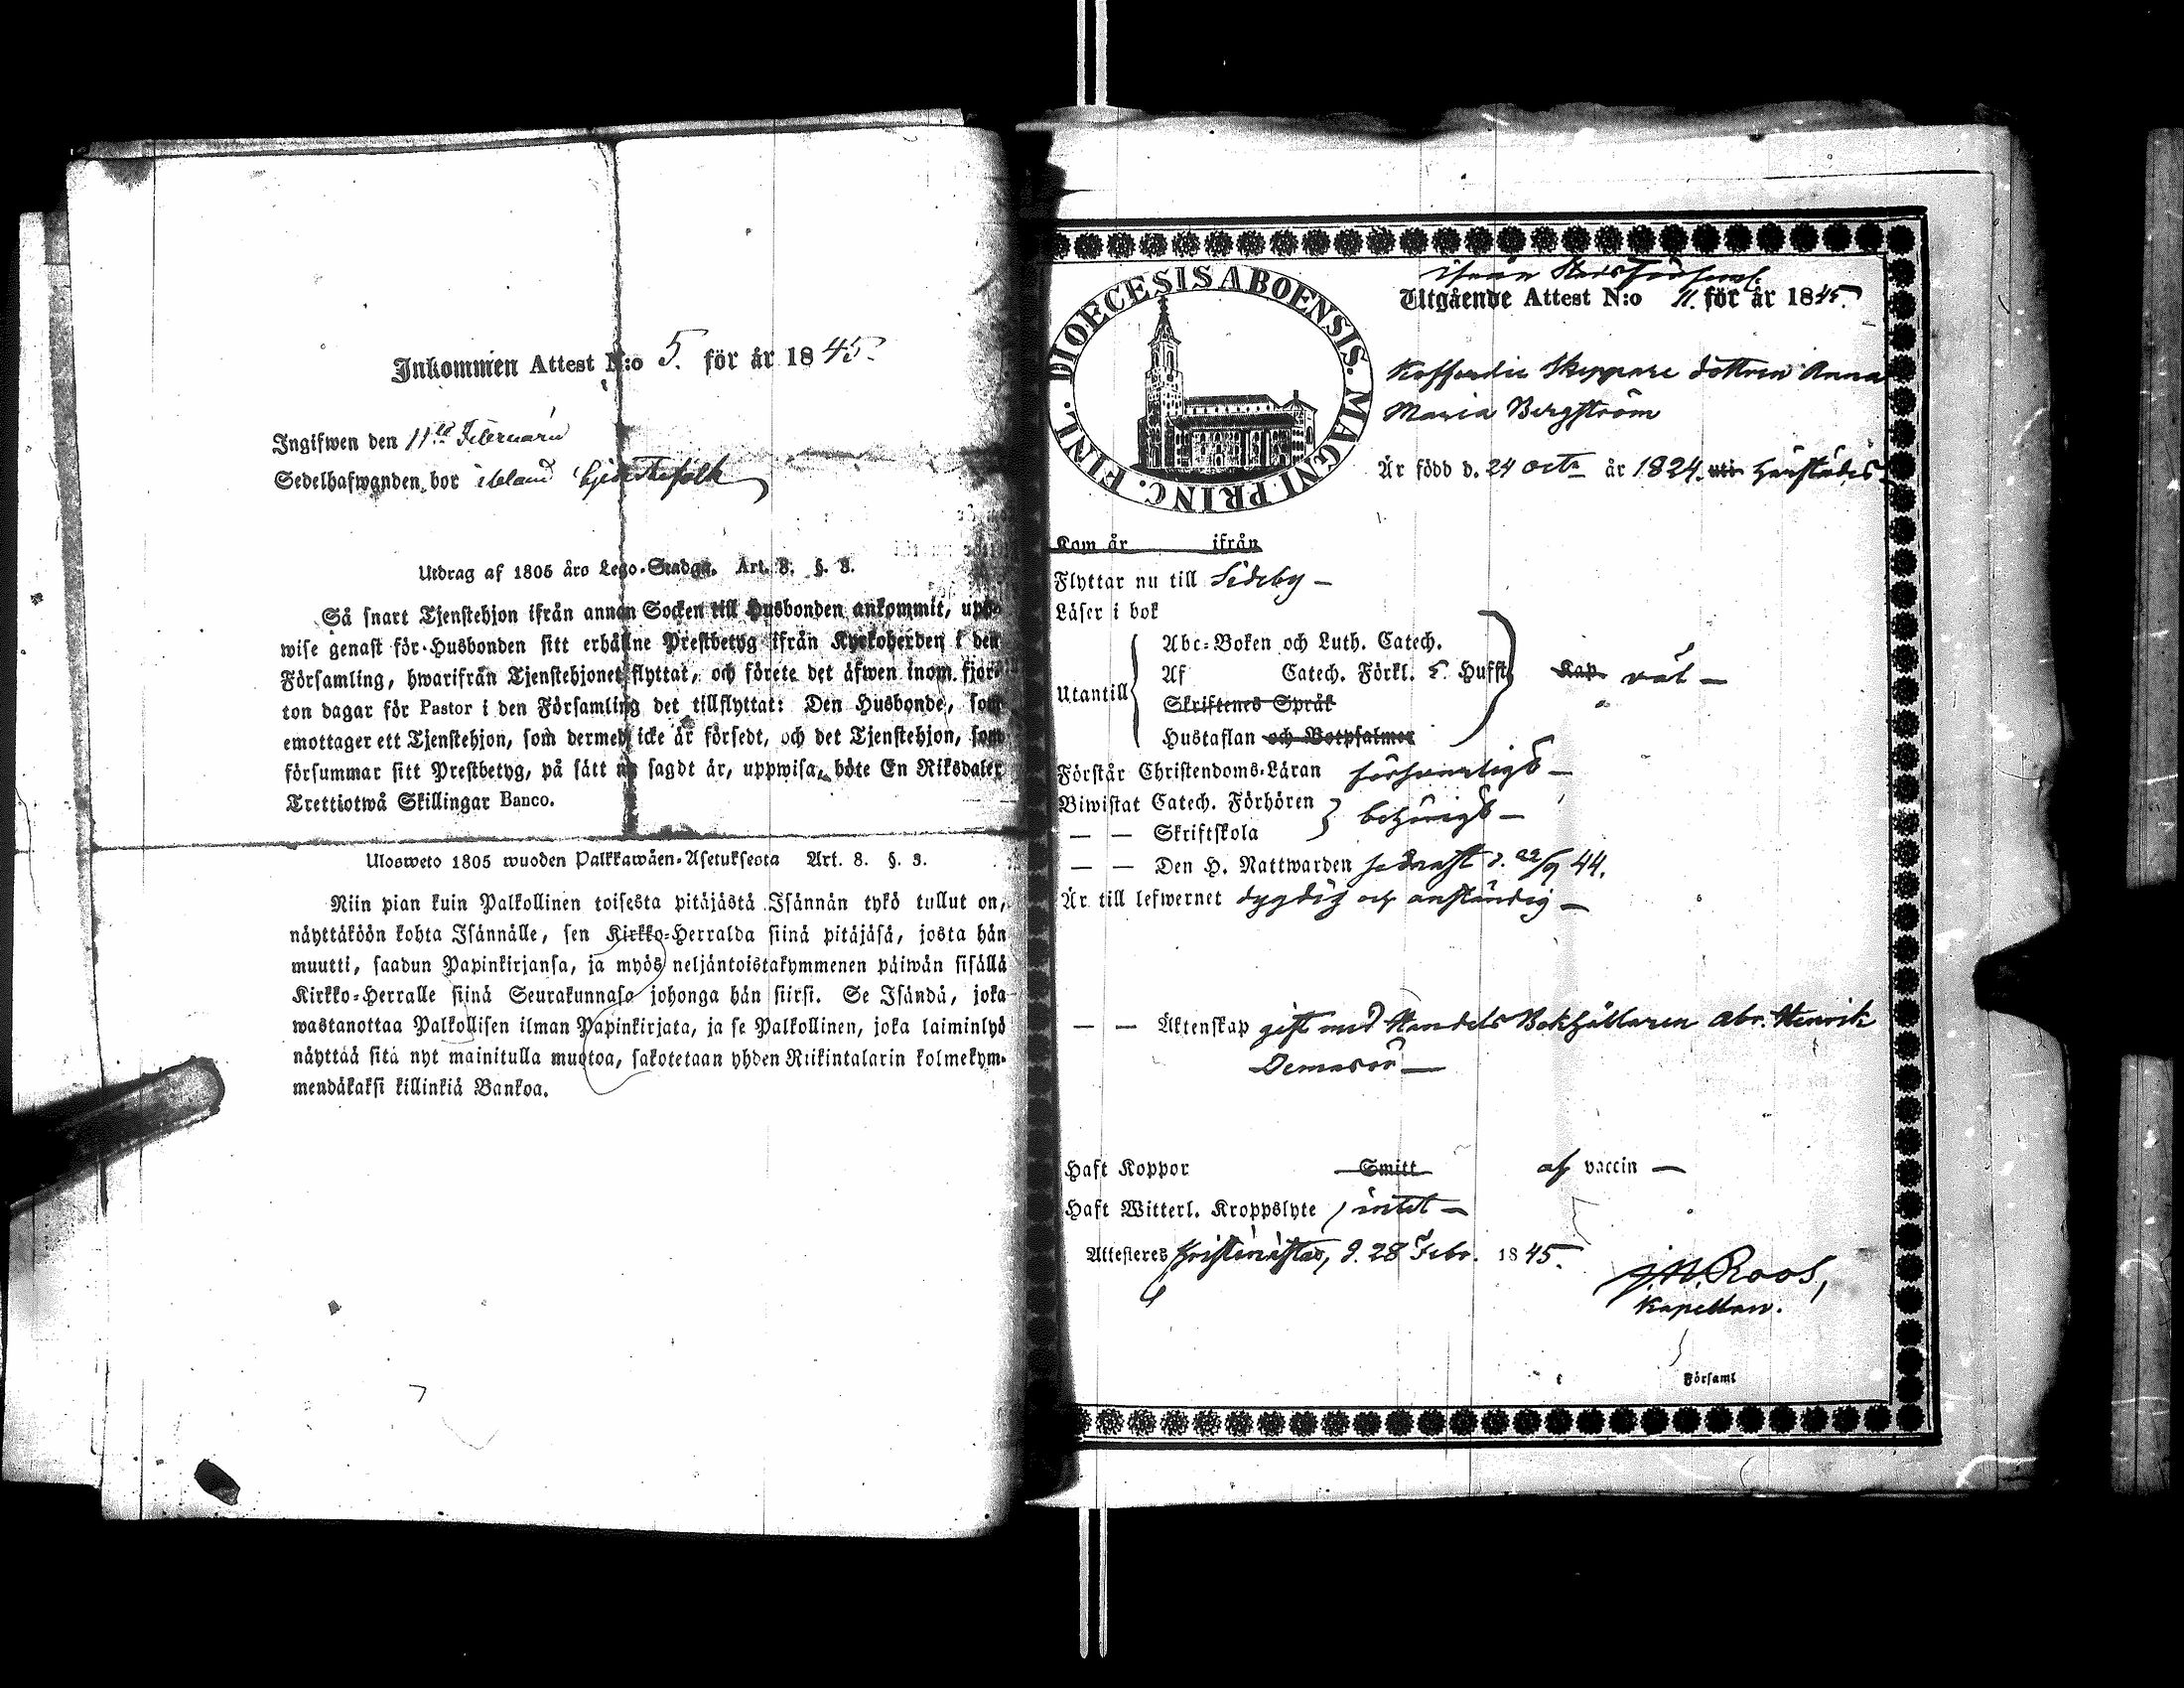 Inkommen Attest N:o 5. för år 1845.
Ingifwen den 11te Februarii
Sedelhafwanden bor ibland tjenstefolk
Utdrag af 1805 års Lego-Stadga. Art. 8. §. 3.
Så snart Tjenstehjon ifrån annan Socken till Husbonden ankommit, upp-
wise genast för Husbonden sitt erhållne Prestbetyg ifrån Kyrkoherden i den
Församling, hwarifrån Tjenstehjonet flyttat, och förete det äfwen inom fjor-
ton dagar för Pastor i den Församling det tillflyttat: Den Husbonde, som
emottager ett Tjenstehjon, som dermed icke är försedt, och det Tjenstehjon, som
försummar sitt Prestbetyg, på sätt nu sagdt är, uppwisa, böte En Riksdaler
Trettiotwå Skillingar Banco.
Ulosweto 1805 wuoden Palkkawäen-Asetuksesta Art. 8. §. 3.
Niin pian kuin Palkollinen toisesta pitäjästä Isännän tykö tullut on,
näyttäköön kohta Isännälle, sen Kirkko-Herralda siinä pitäjäsä, josta hän
muutti, saadun Papinkirjansa, ja myös neljäntoistakymmenen päiwän sisällä
Kirkko-Herralle siinä Seurakunnasa johonga hän siirsi. Se Isändä, joka
wastanottaa Palkollisen ilman Papinkirjata, ja se Palkollinen, joka laiminlyö
näyttää sitä nyt mainitulla muotoa, sakotetaan yhden Riikintalarin kolmekym-
mendäkaksi killinkiä Bankoa.
DIOECESIS ABOENSIS. MAGNI PRINC. FINL.
ifrån Stadsförsaml.
Utgående Attest N:o 11. för år 1845.
Koffardie Skeppare dottren Anna
Maria Bergström
Är född d. 24 octr år 1824. uti härstädes.
Kom år ifrån
Flyttar nu till Sideby —
Läser i bok
Utantill
Abc-Boken och Luth. Catech.
Af Catech. Förkl. 5. Hufst. Kap. väl —
Skriftenes Språk
Hustaflan och Botpsalmer
Förstår Christendoms-Läran försvarligt —
Biwistat Catech. Förhören
— — Skriftskola behörigt —
— — Den H. Nattwarden sednast d. 22/9 44.
Är till lefwernet dygdig och anständig —
— — Äktenskap gift med Handels Bokhållaren Abr. Henrik
Haft Koppor Smitt af vaccin —
Haft Witterl. Kroppslyte intet —
Attesteres Kristinestad, d. 28 Febr. 1845.
J. N. Roos,
Kapellan.
i Församl